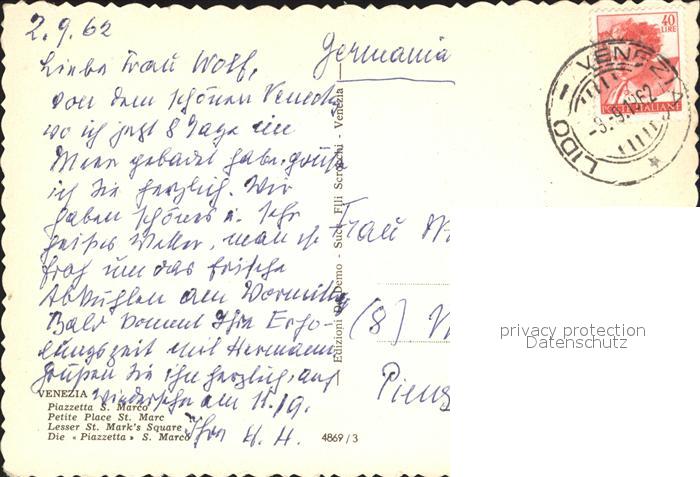 2.9.62
Germania
Liebe Frau Wolf,
von dem schönen Venedig
wo ich jetzt 8 Tage im
Meer gebadet habe, grüße
ich Sie herzlich. Wir
haben schönes u. sehr
heißes Wetter, man ist
froh um das frische
Abkühlen am Vormittag
Bald kommt Ihre Erho-
lungszeit mit Hermann
Grüßen Sie ihn herzlich, auf
Wiedersehen am 11.19.
Ihre H. H.
Frau W
(8)
VENEZIA
Piazzetta S. Marco
Petite Place St. Marc
Lesser St. Mark's Square
Die « Piazzetta » S. Marco
4869/3
Venezia
40
LIRE
POSTE ITALIANE
LIDO - VENEZIA
-3.9.1962
privacy protection
Datenschutz